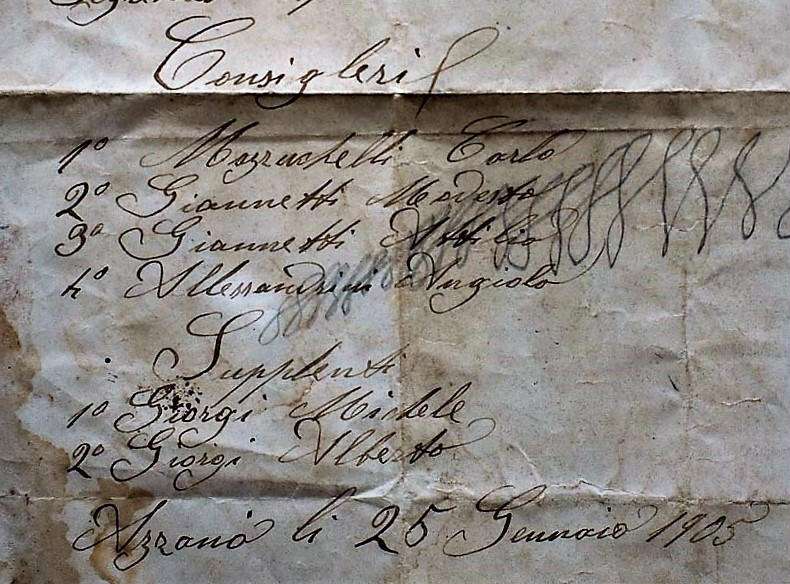 Consiglieri
1º Mazzuchelli Carlo
2º Giannetti Modesto
3º Giannetti Attilio
4º Allessandrini Angiolo
Supplenti
1º Giorgi Michele
2º Giorgi Alberto
Azzano li 25 Gennaio 1905